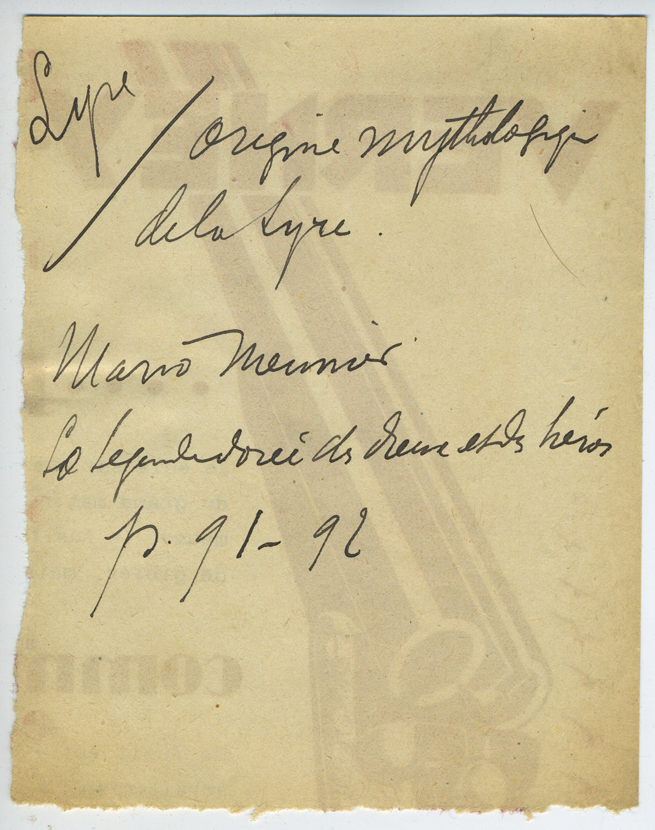 Lyre
/ origine mythologique
de la Lyre.
Mario Meunier
La Légende dorée des dieux et des héros
p. 91-92
VERNEY
comm